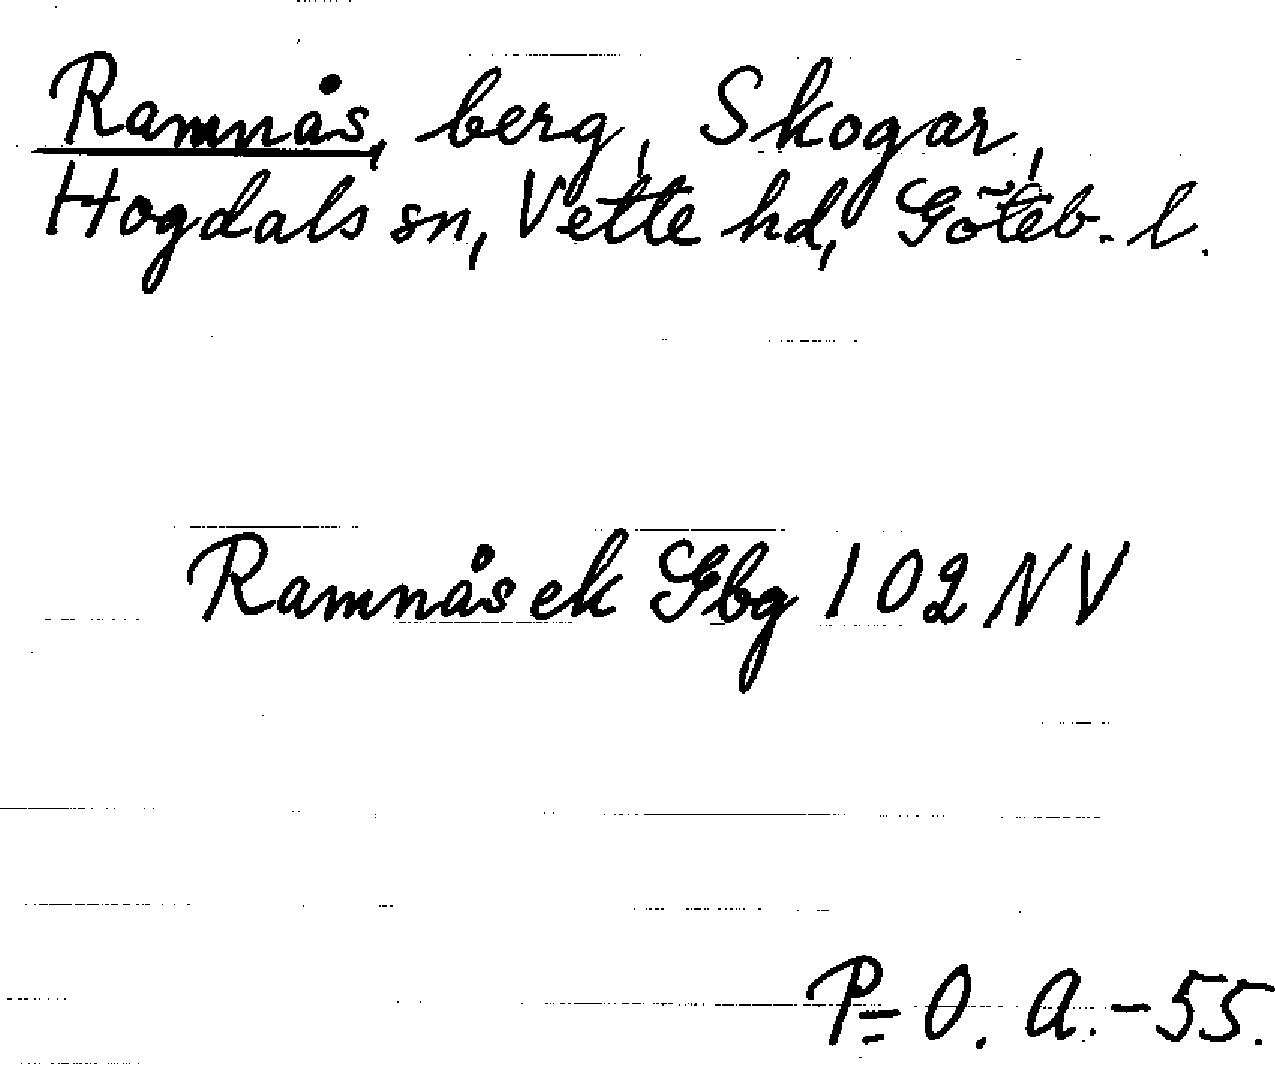 Ramnås, berg, Skogar,
Hogdals sn, Vette hd, Göteb. l.
Ramnås ek Gbg 102 NV
P=O. A.-55.